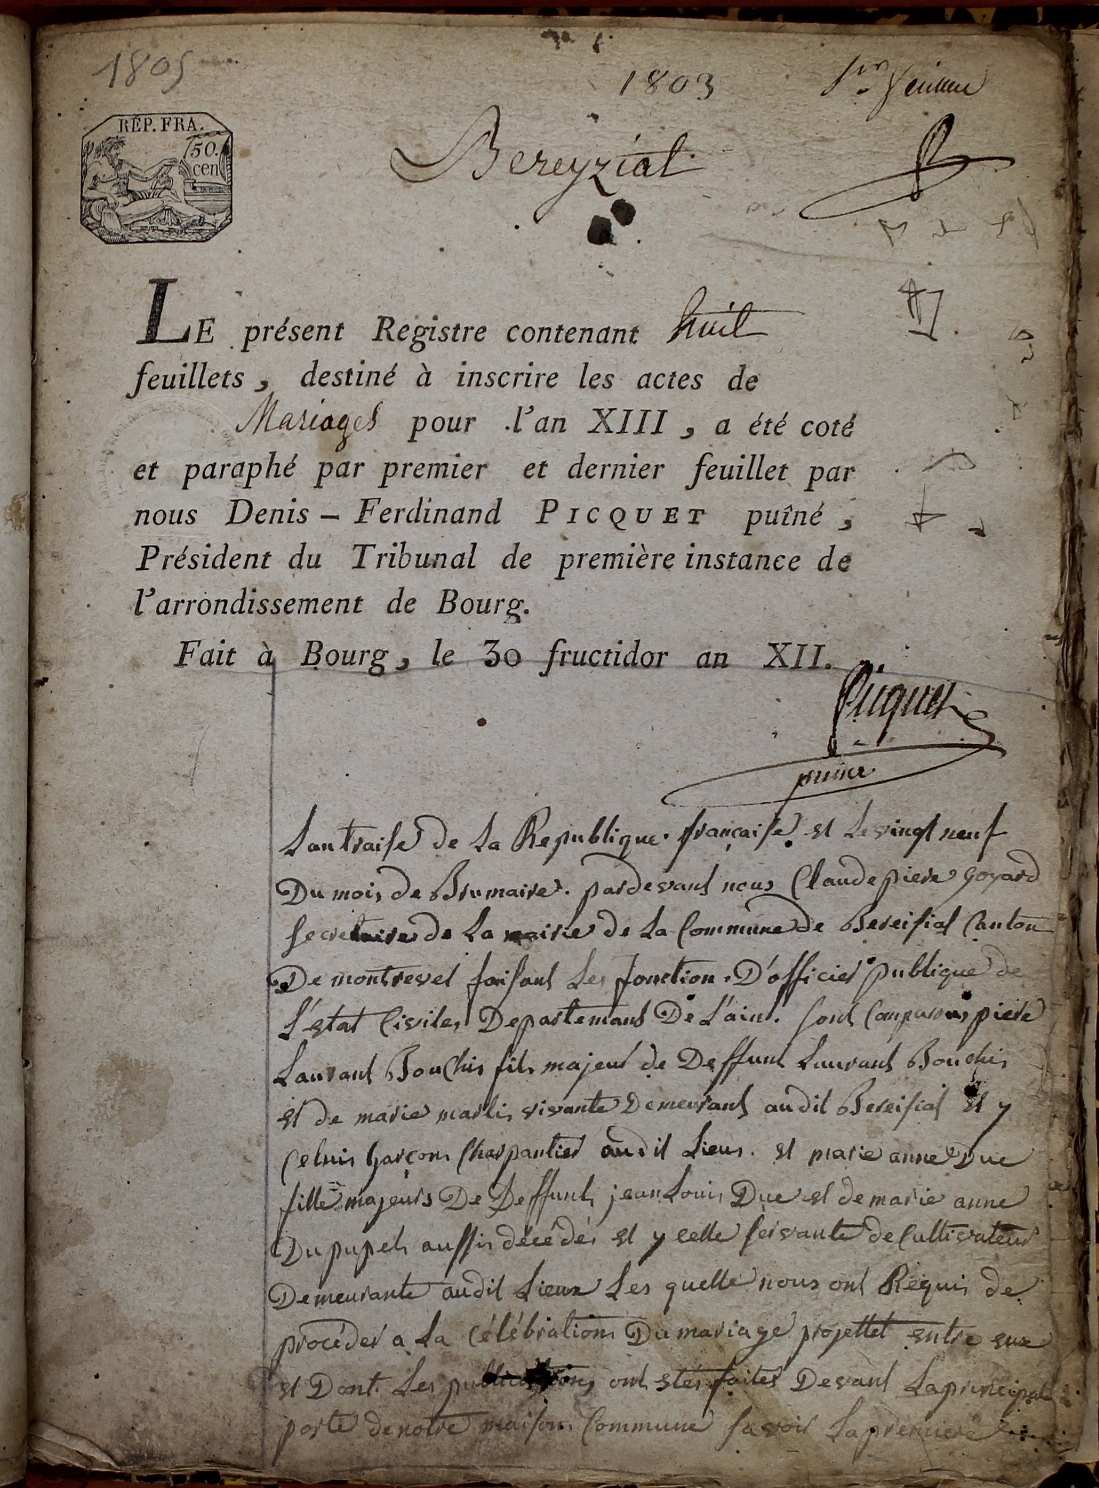 1805
1803
1er feuillet
RÉP. FRA.
50.
cen
Bereyziat
LE présent Registre contenant huit
feuillets, destiné à inscrire les actes de
Mariages pour l'an XIII, a été coté
et paraphé par premier et dernier feuillet par
nous Denis - Ferdinand PICQUET puîné,
Président du Tribunal de première instance de
l'arrondissement de Bourg.
Fait à Bourg, le 30 fructidor an XII.
Picquet
puiné
Lan traise de La Republique. française et Le vingt neuf
Du mois de Brumaire. pardevant nous Claude piere goyard
secretaire de La mairie de La Commune de Bereisiat Canton
De montrevel faisant Les fonction D'officier publique de
L'estat Civiles Departemant De L'ain. sont Comparus piere
Laurant Bouchis fils majeur de Deffunt Laurant Bouchis
et de marie marlis vivante Demeurant audit Bereisiat et y
Celuis garçon Charpantier audit Lieus. et marie anne Duc
fille majeurs De Deffunts jean Louis Duc et de marie anne
Dupupets aussis décédés et y celle servante de Cultivateur
Demeurante audit Lieux Les quelle nous ont Requis de
procéder a La Célébrations Du mariage projettet entre eux
et Dont Les publications ont etés faites Devant La principale
porte de notre maison Commune savoir La premiere